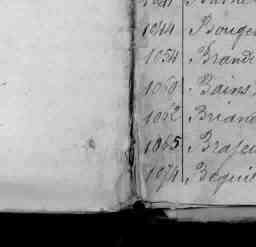 1044 Bouge
1054 Brand
1060 Bains
1062 Brian
1065 Braseu
1074 Béguie